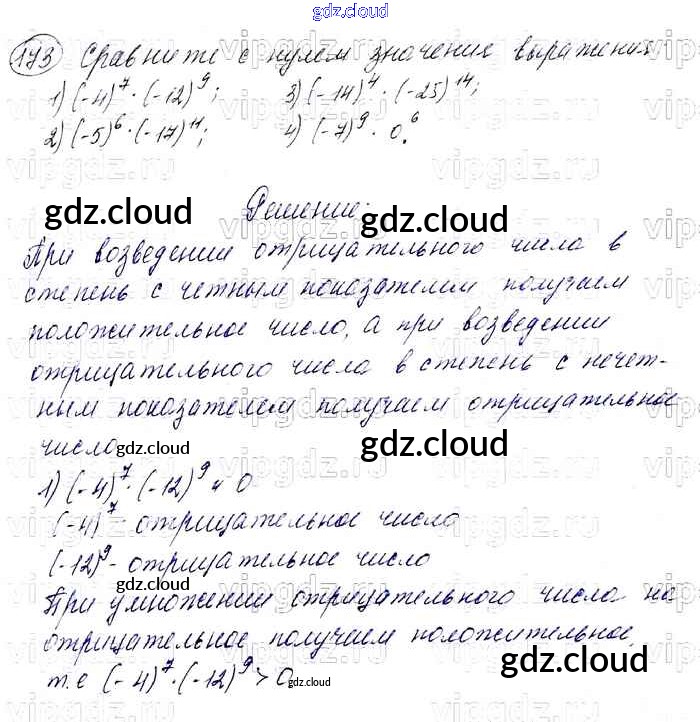 gdz.cloud
173 Сравните с нулем значение выражения
1) (-4)⁷ · (-12)⁹; 3) (-14)⁴ · (-25)¹⁴;
2) (-5)⁶ · (-17)¹¹; 4) (-7)⁹ · 0⁶.
gdz.cloud gdz.cloud
Решение:
При возведении отрицательного числа в
степень с четным показателем получаем
положительное число, а при возведении
отрицательного числа в степень с нечет-
ным показателем получаем отрицательное
число
gdz.cloud gdz.cloud
1) (-4)⁷ · (-12)⁹ и 0
(-4)⁷ - отрицательное число
(-12)⁹ - отрицательное число
gdz.cloud
При умножении отрицательного числа на
отрицательное получаем положительное,
т.е (-4)⁷ · (-12)⁹ > 0
gdz.cloud